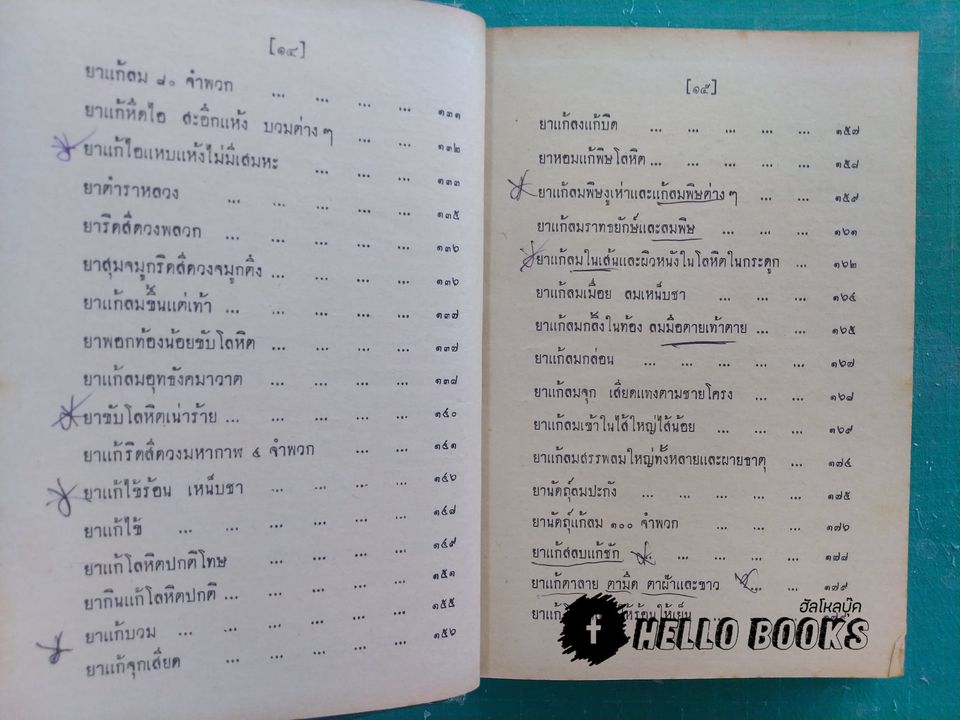 [๑๔]
ยาแก้ลม ๘๐ จำพวก ... ... ... ... ๑๓๑
ยาแก้หืดไอ สะอึกแห้ง บวมต่าง ๆ ... ... ๑๓๒
ยาแก้ไอแหบแห้งไม่มีเสมหะ ... ... ... ๑๓๓
ยาตำราหลวง ... ... ... ... ๑๓๕
ยาริดสีดวงพลวก ... ... ... ... ... ๑๓๖
ยาสุมจมูกริดสีดวงจมูกตึง ... ... ... ... ๑๓๖
ยาแก้ลมขึ้นแต่เท้า ... ... ... ... ... ๑๓๗
ยาพอกท้องน้อยขับโลหิต ... ... ... ... ๑๓๗
ยาแก้ลมอุทธังคมาวาต ... ... ... ... ๑๓๘
ยาขับโลหิตเน่าร้าย ... ... ... ... ... ๑๔๐
ยาแก้ริดสีดวงมหากาฬ ๔ จำพวก ... ... ๑๔๑
ยาแก้ไข้ร้อน เหน็บชา ... ... ... ... ๑๔๖
ยาแก้ไข้ ... ... ... ... ... ... ๑๔๘
ยาแก้โลหิตปกติโทษ ... ... ... ... ๑๔๙
ยากินแก้โลหิตปกติ ... ... ... ... ... ๑๕๑
ยาแก้บวม ... ... ... ... ... ... ๑๕๕
ยาแก้จุกเสียด ... ... ... ... ... ๑๕๖
[๑๕]
ยาแก้ลงแก้บิด ... ... ... ... ... ๑๕๗
ยาหอมแก้พิษโลหิต ... ... ... ... ... ๑๕๘
ยาแก้ลมพิษงูเห่าและแก้ลมพิษต่าง ๆ ... ... ๑๕๙
ยาแก้ลมราทธยักษ์และลมพิษ ... ... ... ๑๖๑
ยาแก้ลมในเส้นและผิวหนังในโลหิตในกระดูก ... ๑๖๒
ยาแก้ลมเมื่อย ลมเหน็บชา ... ... ... ๑๖๔
ยาแก้ลมกลิ้งในท้อง ลมมือตายเท้าตาย ... ... ๑๖๕
ยาแก้ลมกล่อน ... ... ... ... ๑๖๗
ยาแก้ลมจุก เสียดแทงตามชายโครง ... ... ๑๖๘
ยาแก้ลมเข้าในไส้ใหญ่ไส้น้อย ... ... ... ๑๖๙
ยาแก้ลมสรรพลมใหญ่ทั้งหลายและผายธาตุ ... ๑๗๔
ยานัดถุ์ลมปะกัง ... ... ... ... ... ๑๗๕
ยานัดถุ์แก้ลม ๑๐๐ จำพวก ... ... ... ๑๗๖
ยาแก้สลบแก้ชัก ... ... ... ... ๑๗๘
ยาแก้ตาลาย ตามืด ตาฝ้าและขาว ... ... ๑๗๙
ห้ร้อนให้เย็น
ฮัลโหลบุ๊ค
f HELLO BOOKS